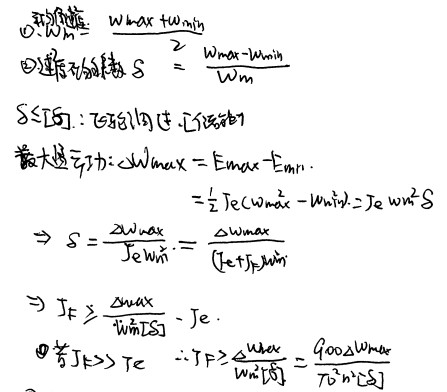 ①. ωm = (ωmax + ωmin) / 2
②速度不均匀系数 δ = (ωmax - ωmin) / ωm
δ ≤ [δ] ∴飞轮调速
最大盈亏功: ΔWmax = Emax - Emin.
= 1/2 Je(ωmax² - ωmin²) = Je ωm² δ
⇒ δ = ΔWmax / (Je ωm²) = ΔWmax / ((Je + JF) ωm²)
⇒ JF ≥ ΔWmax / (ωm² [δ]) - Je.
①若 JF >> Je ∴ JF ≥ ΔWmax / (ωm² [δ]) = 900ΔWmax / (π² n² [δ])